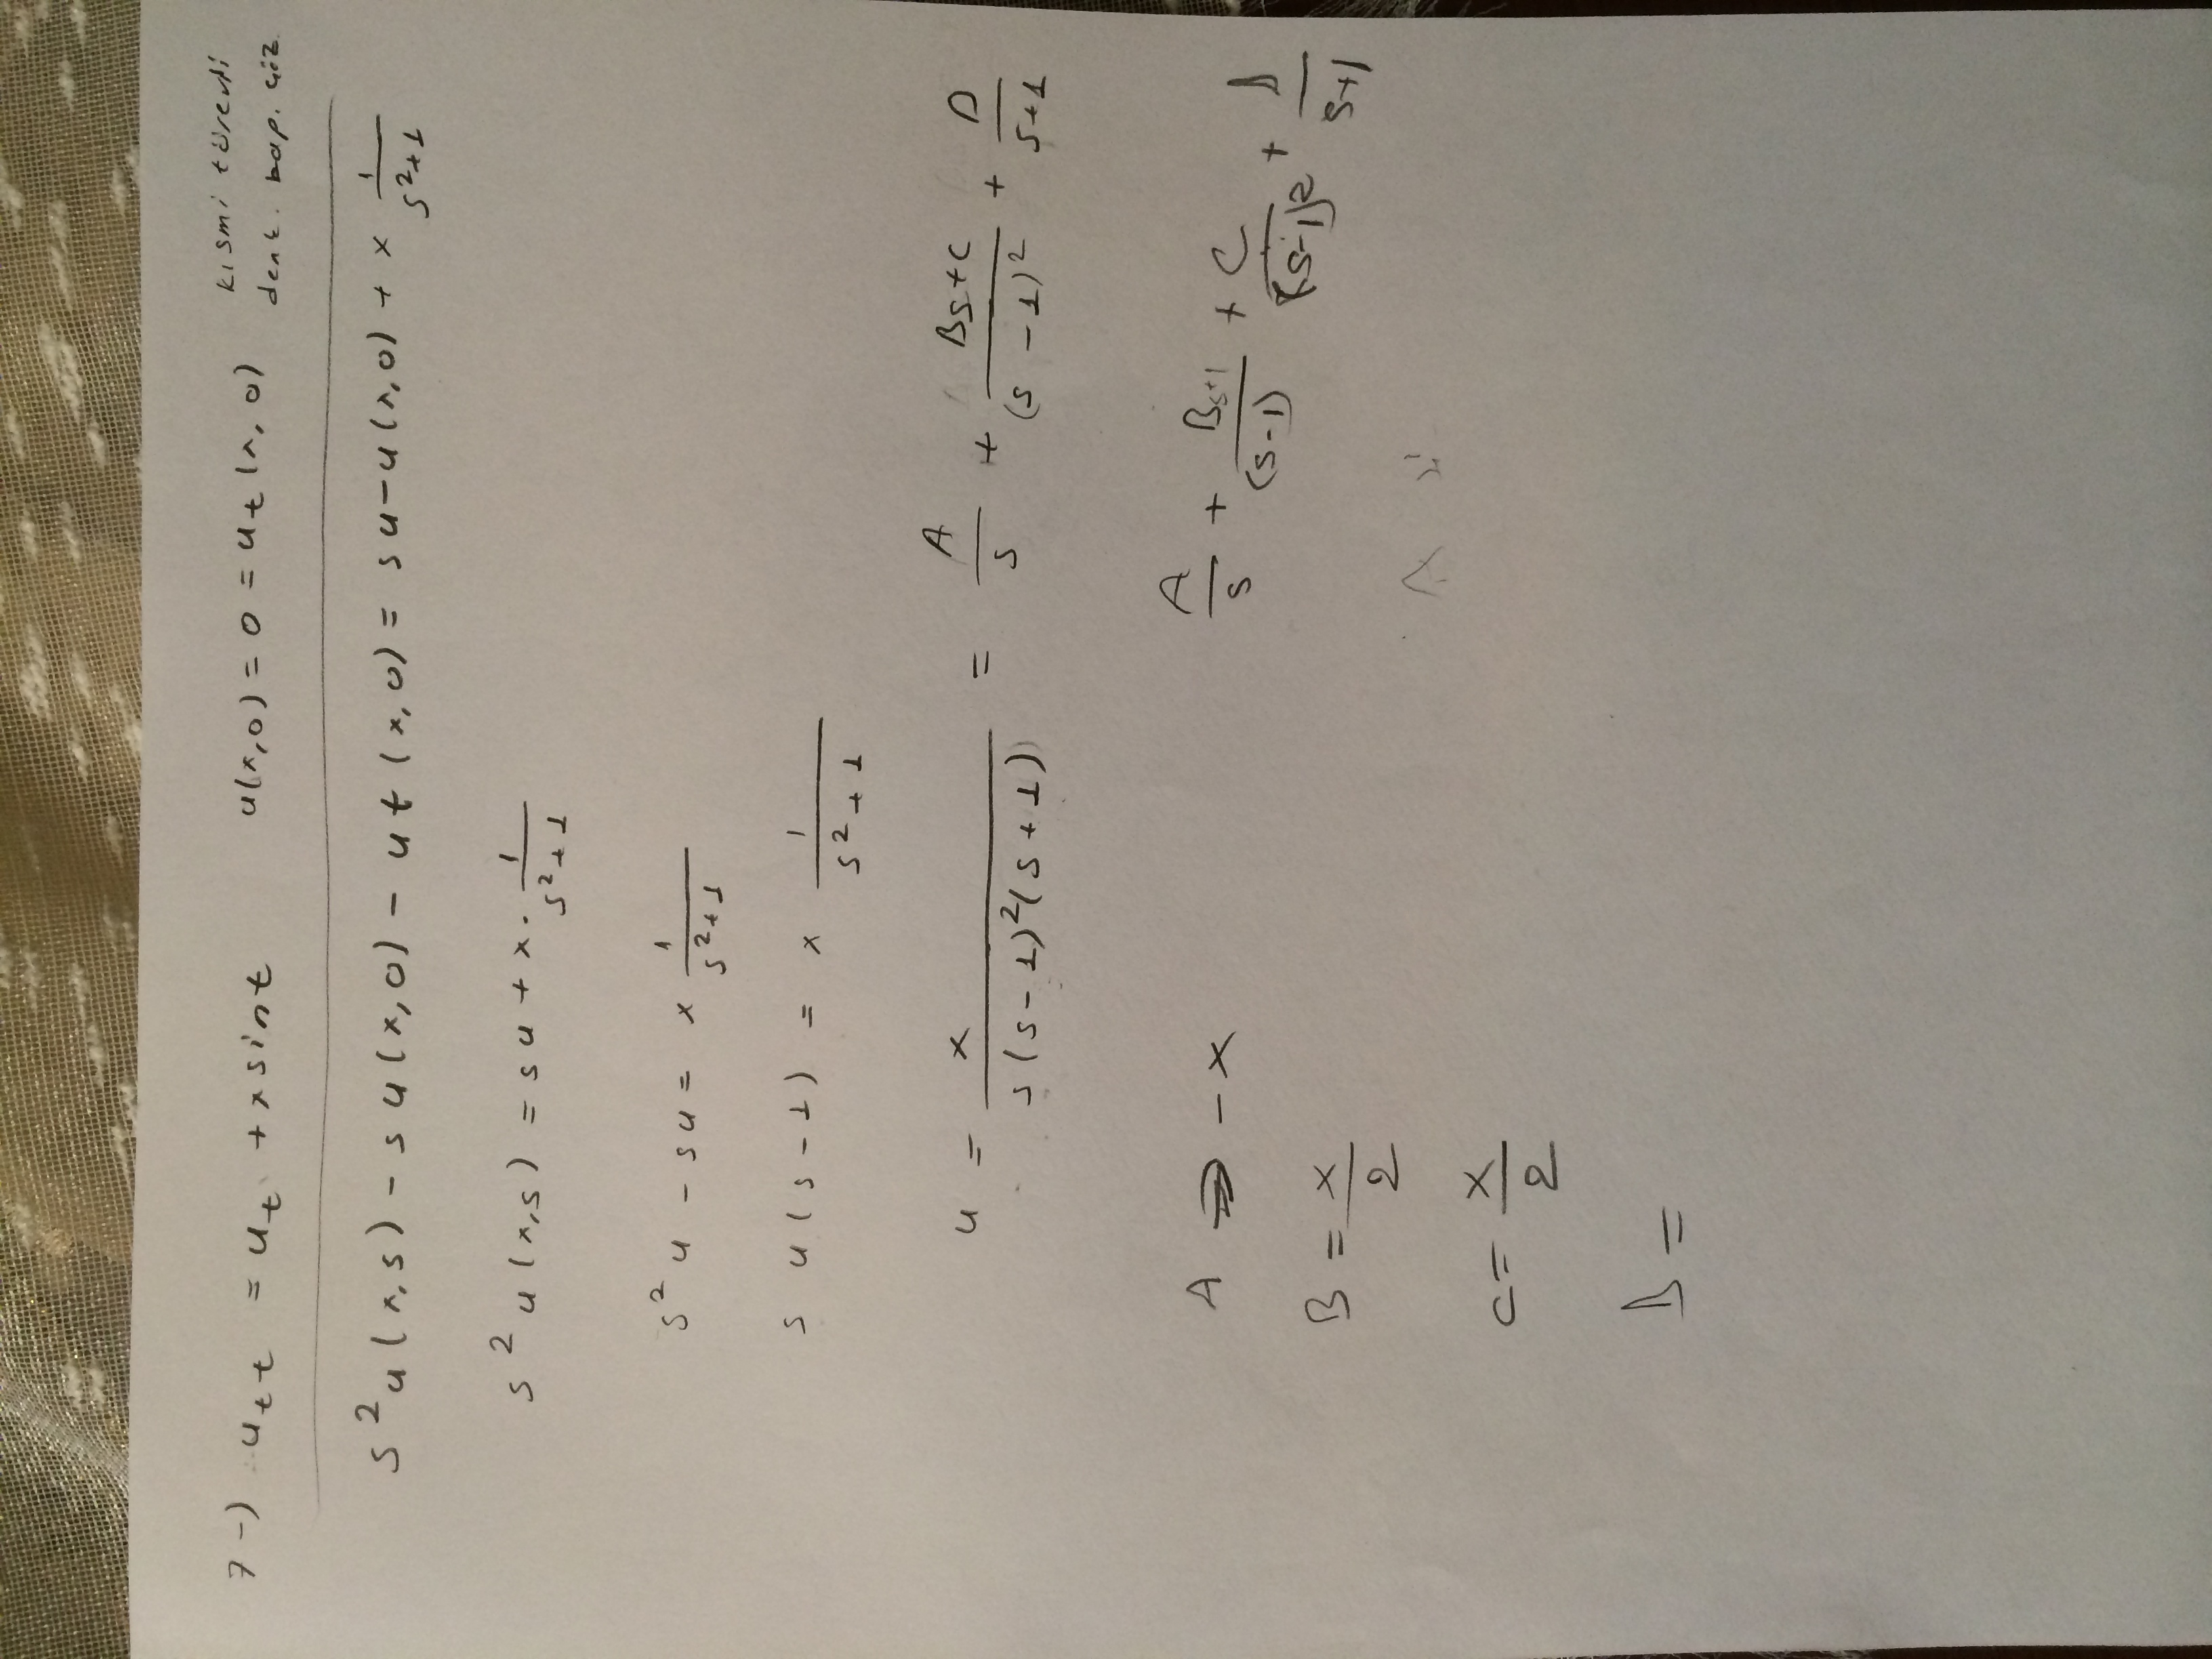 7-) u_tt = u_t + x sint u(x,0) = 0 = u_t(x,0) kısmi türevli
denk. bap. çöz.
s²u(x,s) - su(x,0) - ut(x,0) = su-u(x,0) + x 1/(s²+1)
s²u(x,s) = su + x. 1/(s²+1)
s²u - su = x 1/(s²+1)
s u(s-1) = x 1/(s²+1)
u = x/(s(s-1)²(s+1)) = A/s + (Bs+C)/(s-1)² + D/(s+1)
A -x
A/s + (Bs+1)/(s-1) + C/(s-1)² + D/(s+1)
B = x/2
A
C = x/2
D =